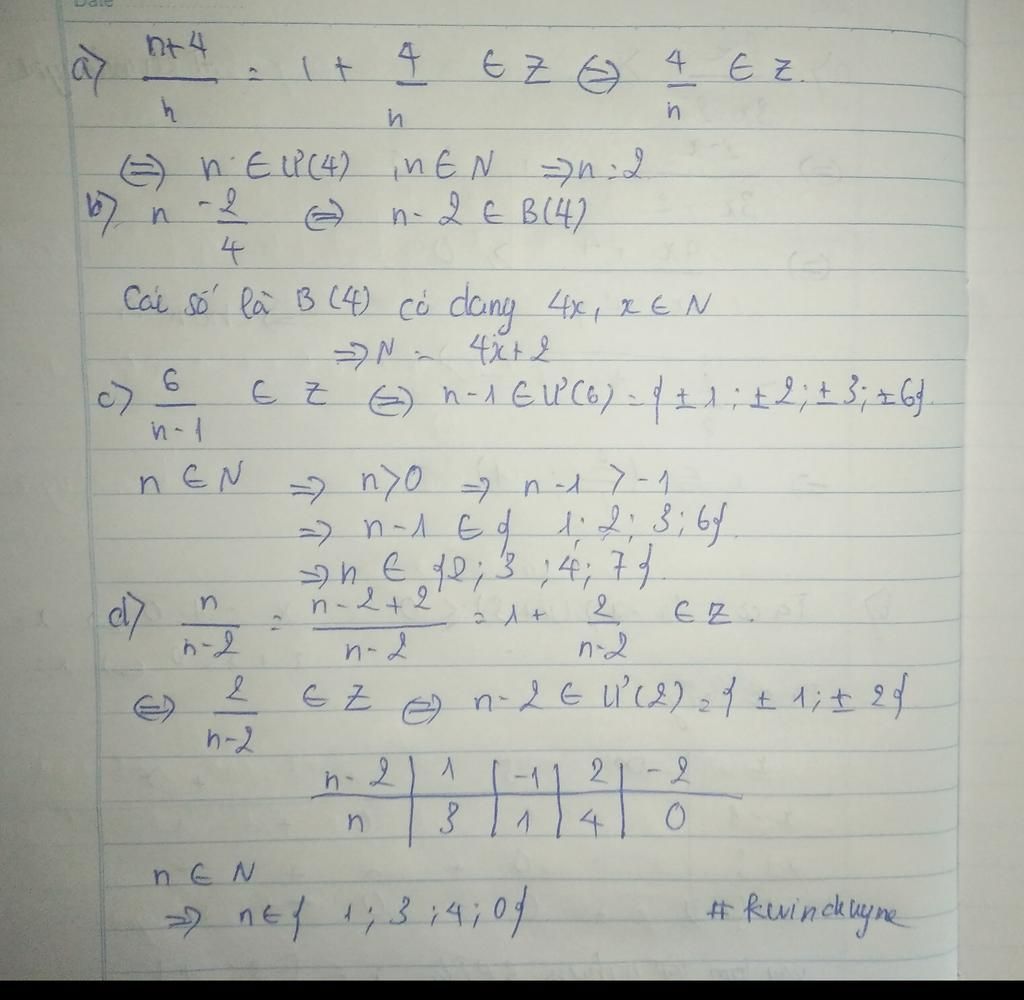 Date
a) n+4/n = 1 + 4/n ∈ Z ⇔ 4/n ∈ Z.
⇔ n ∈ Ư(4) , n ∈ N ⇒ n = 2
b) n -2/4 ⇔ n - 2 ∈ B(4)
Các số là B(4) có dạng 4x, x ∈ N
⇒ N = 4x+2
c) 6/n-1 ∈ Z ⇔ n-1 ∈ Ư(6) = { ±1 ; ±2 ; ±3 ; ±6}.
n ∈ N ⇒ n > 0 ⇒ n-1 > -1
⇒ n-1 ∈ { 1; 2; 3; 6}.
⇒ n ∈ {2; 3 ; 4; 7}.
d) n/n-2 = n-2+2/n-2 = 1 + 2/n-2 ∈ Z.
⇔ 2/n-2 ∈ Z ⇔ n-2 ∈ Ư(2) = { ±1; ±2}
n-2 | 1 | -1 | 2 | -2
n | 3 | 1 | 4 | 0
n ∈ N
⇒ n ∈ { 1 ; 3 ; 4 ; 0}